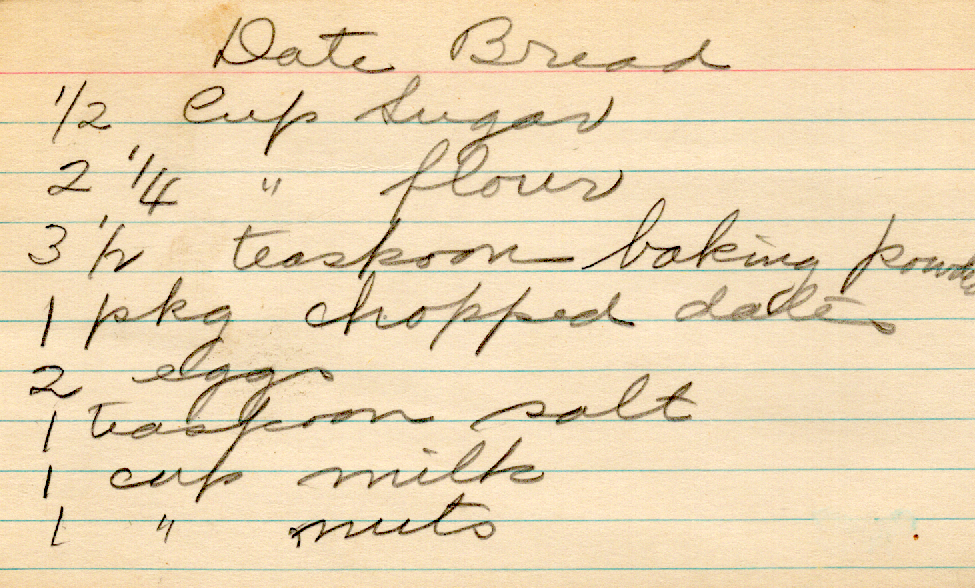 Date Bread
1/2 Cup Sugar
2 1/4 " flour
3 1/2 teaspoon baking powde
1 pkg chopped dates
2 eggs
1 teaspoon salt
1 cup milk
1 " nuts